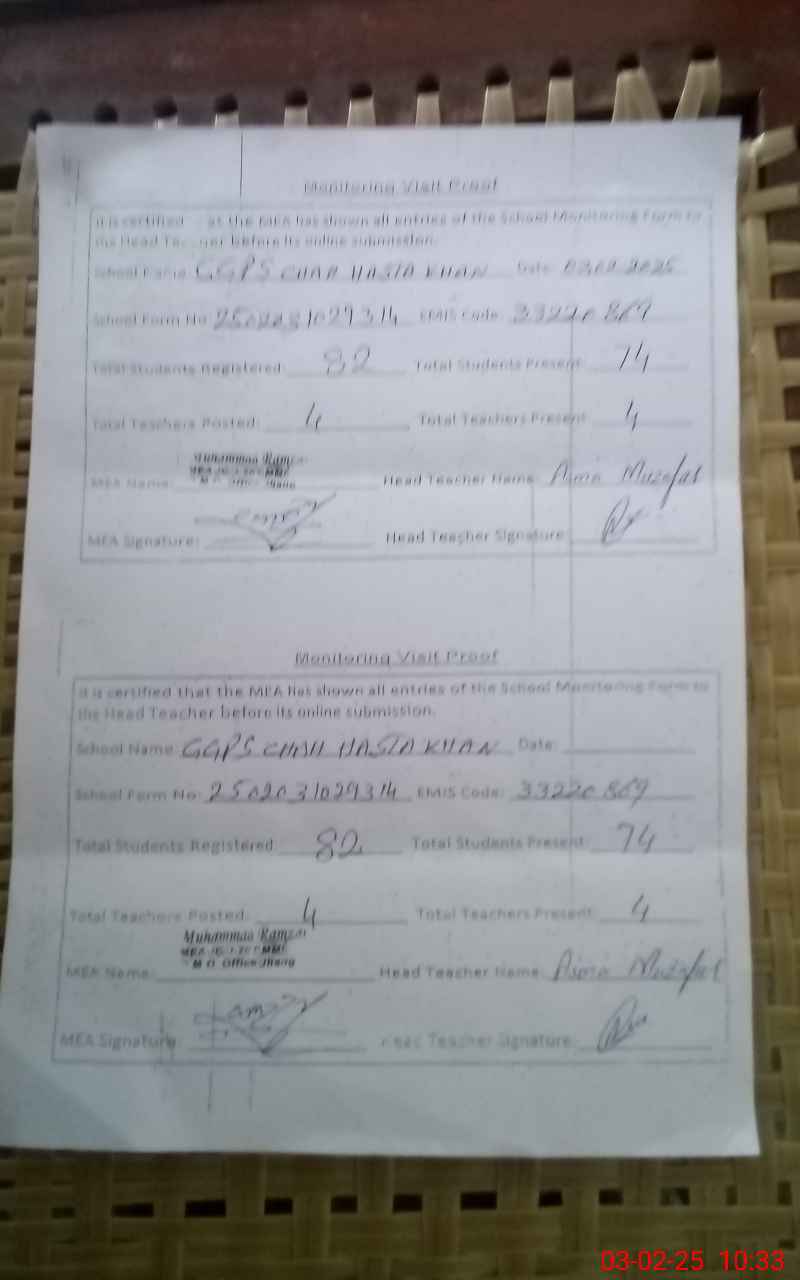 Monitoring Visit Proof
It is certified at the MEA has shown all entries of the School Monitoring Form to
the Head Teacher before its online submission.
School Name: GGPS CHAH HASTA KHAN Date: 03.02.2025
School Form No: 2502031029314 EMIS Code: 33220869
Total Students Registered: 82 Total Students Present: 74
Total Teachers Posted: 4 Total Teachers Present: 4
Muhammad Ramzan
MEA Name: Head Teacher Name: Asma Muzafar
M.O. Office Jhang
MEA Signature: Head Teacher Signature:
Monitoring Visit Proof
It is certified that the MEA has shown all entries of the School Monitoring Form to
the Head Teacher before its online submission.
School Name: GGPS CHAH HASTA KHAN Date:
School Form No: 2502031029314 EMIS Code: 33220869
Total Students Registered 82 Total Students Present: 74
Total Teachers Posted: 4 Total Teachers Present: 4
Muhammad Ramzan
M.O. Office Jhang
MEA Name: Head Teacher Name: Asma Muzafar
MEA Signature: Head Teacher Signature:
03-02-25 10:33